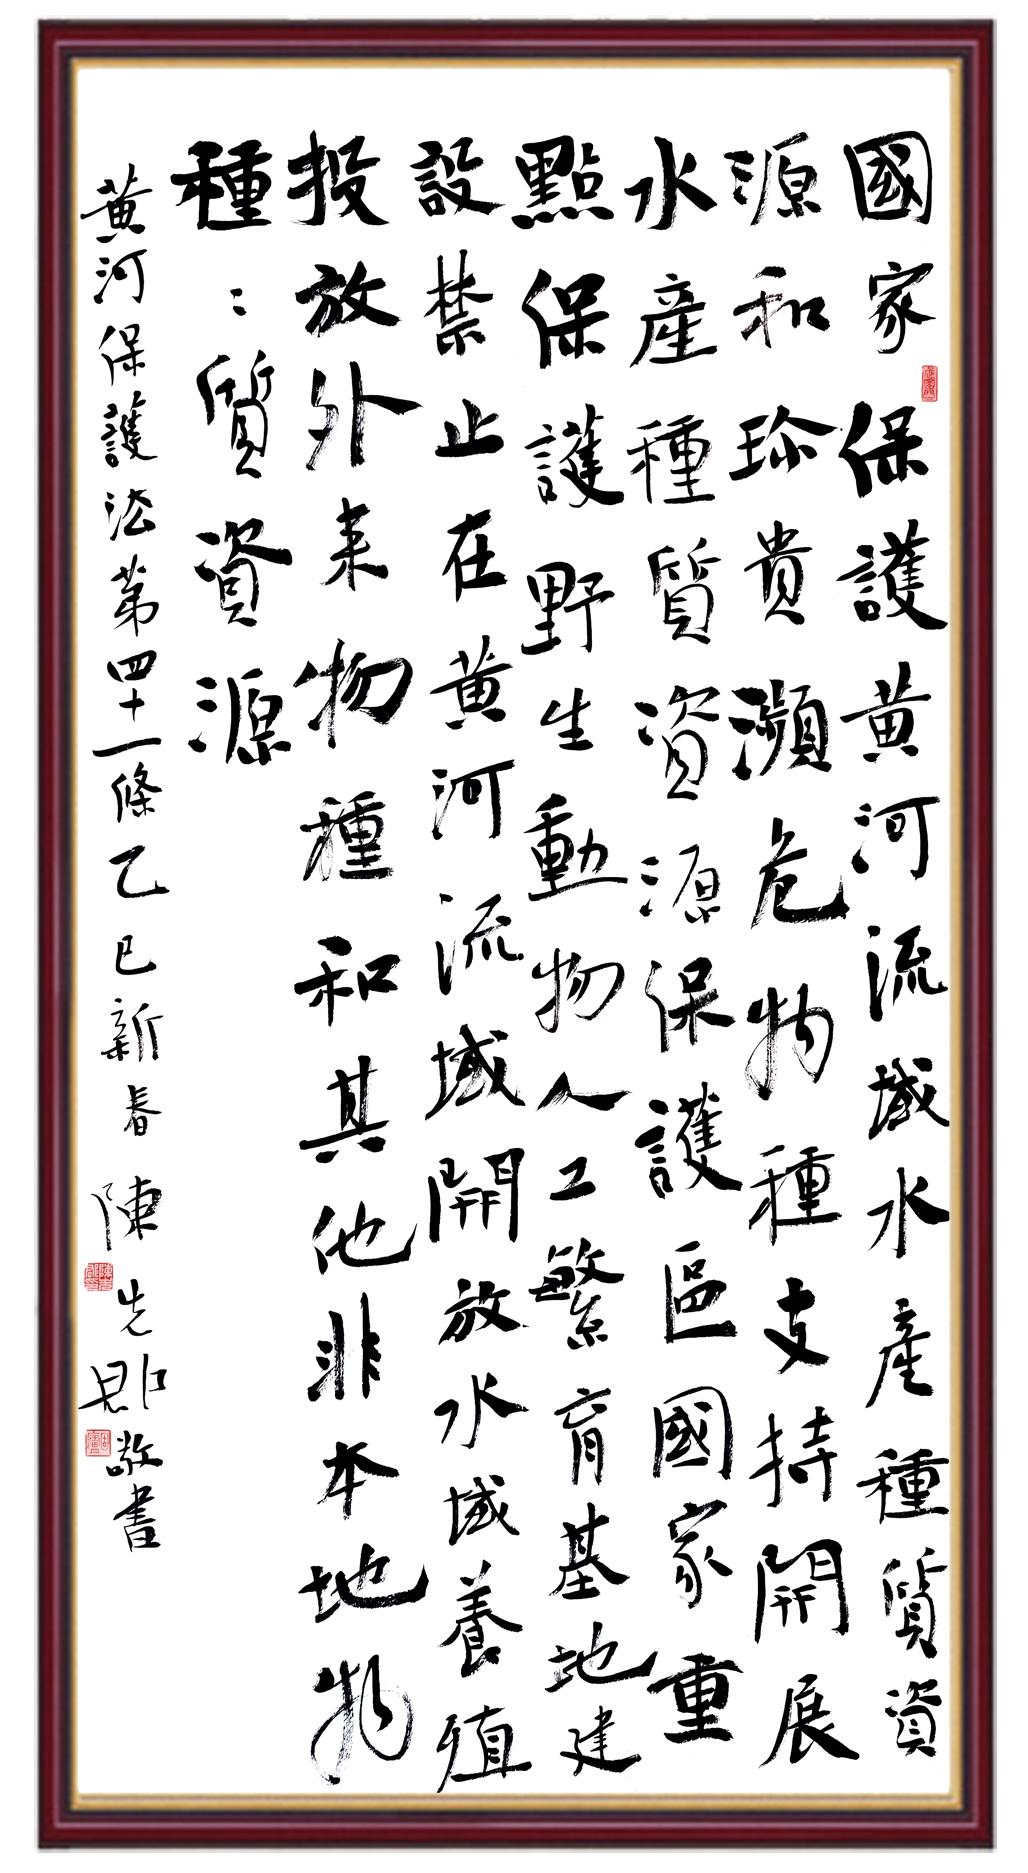 國家保護黄河流域水產種質資
源和珎貴瀕危物種支持開展
水產種質資源保護區國家重
點保護野生動物人工繁育基地建
設禁止在黄河流域開放水域養殖
投放外来物種和其他非本地物
種：質資源
黄河保護法第四十一條乙巳新春 陳先敬書